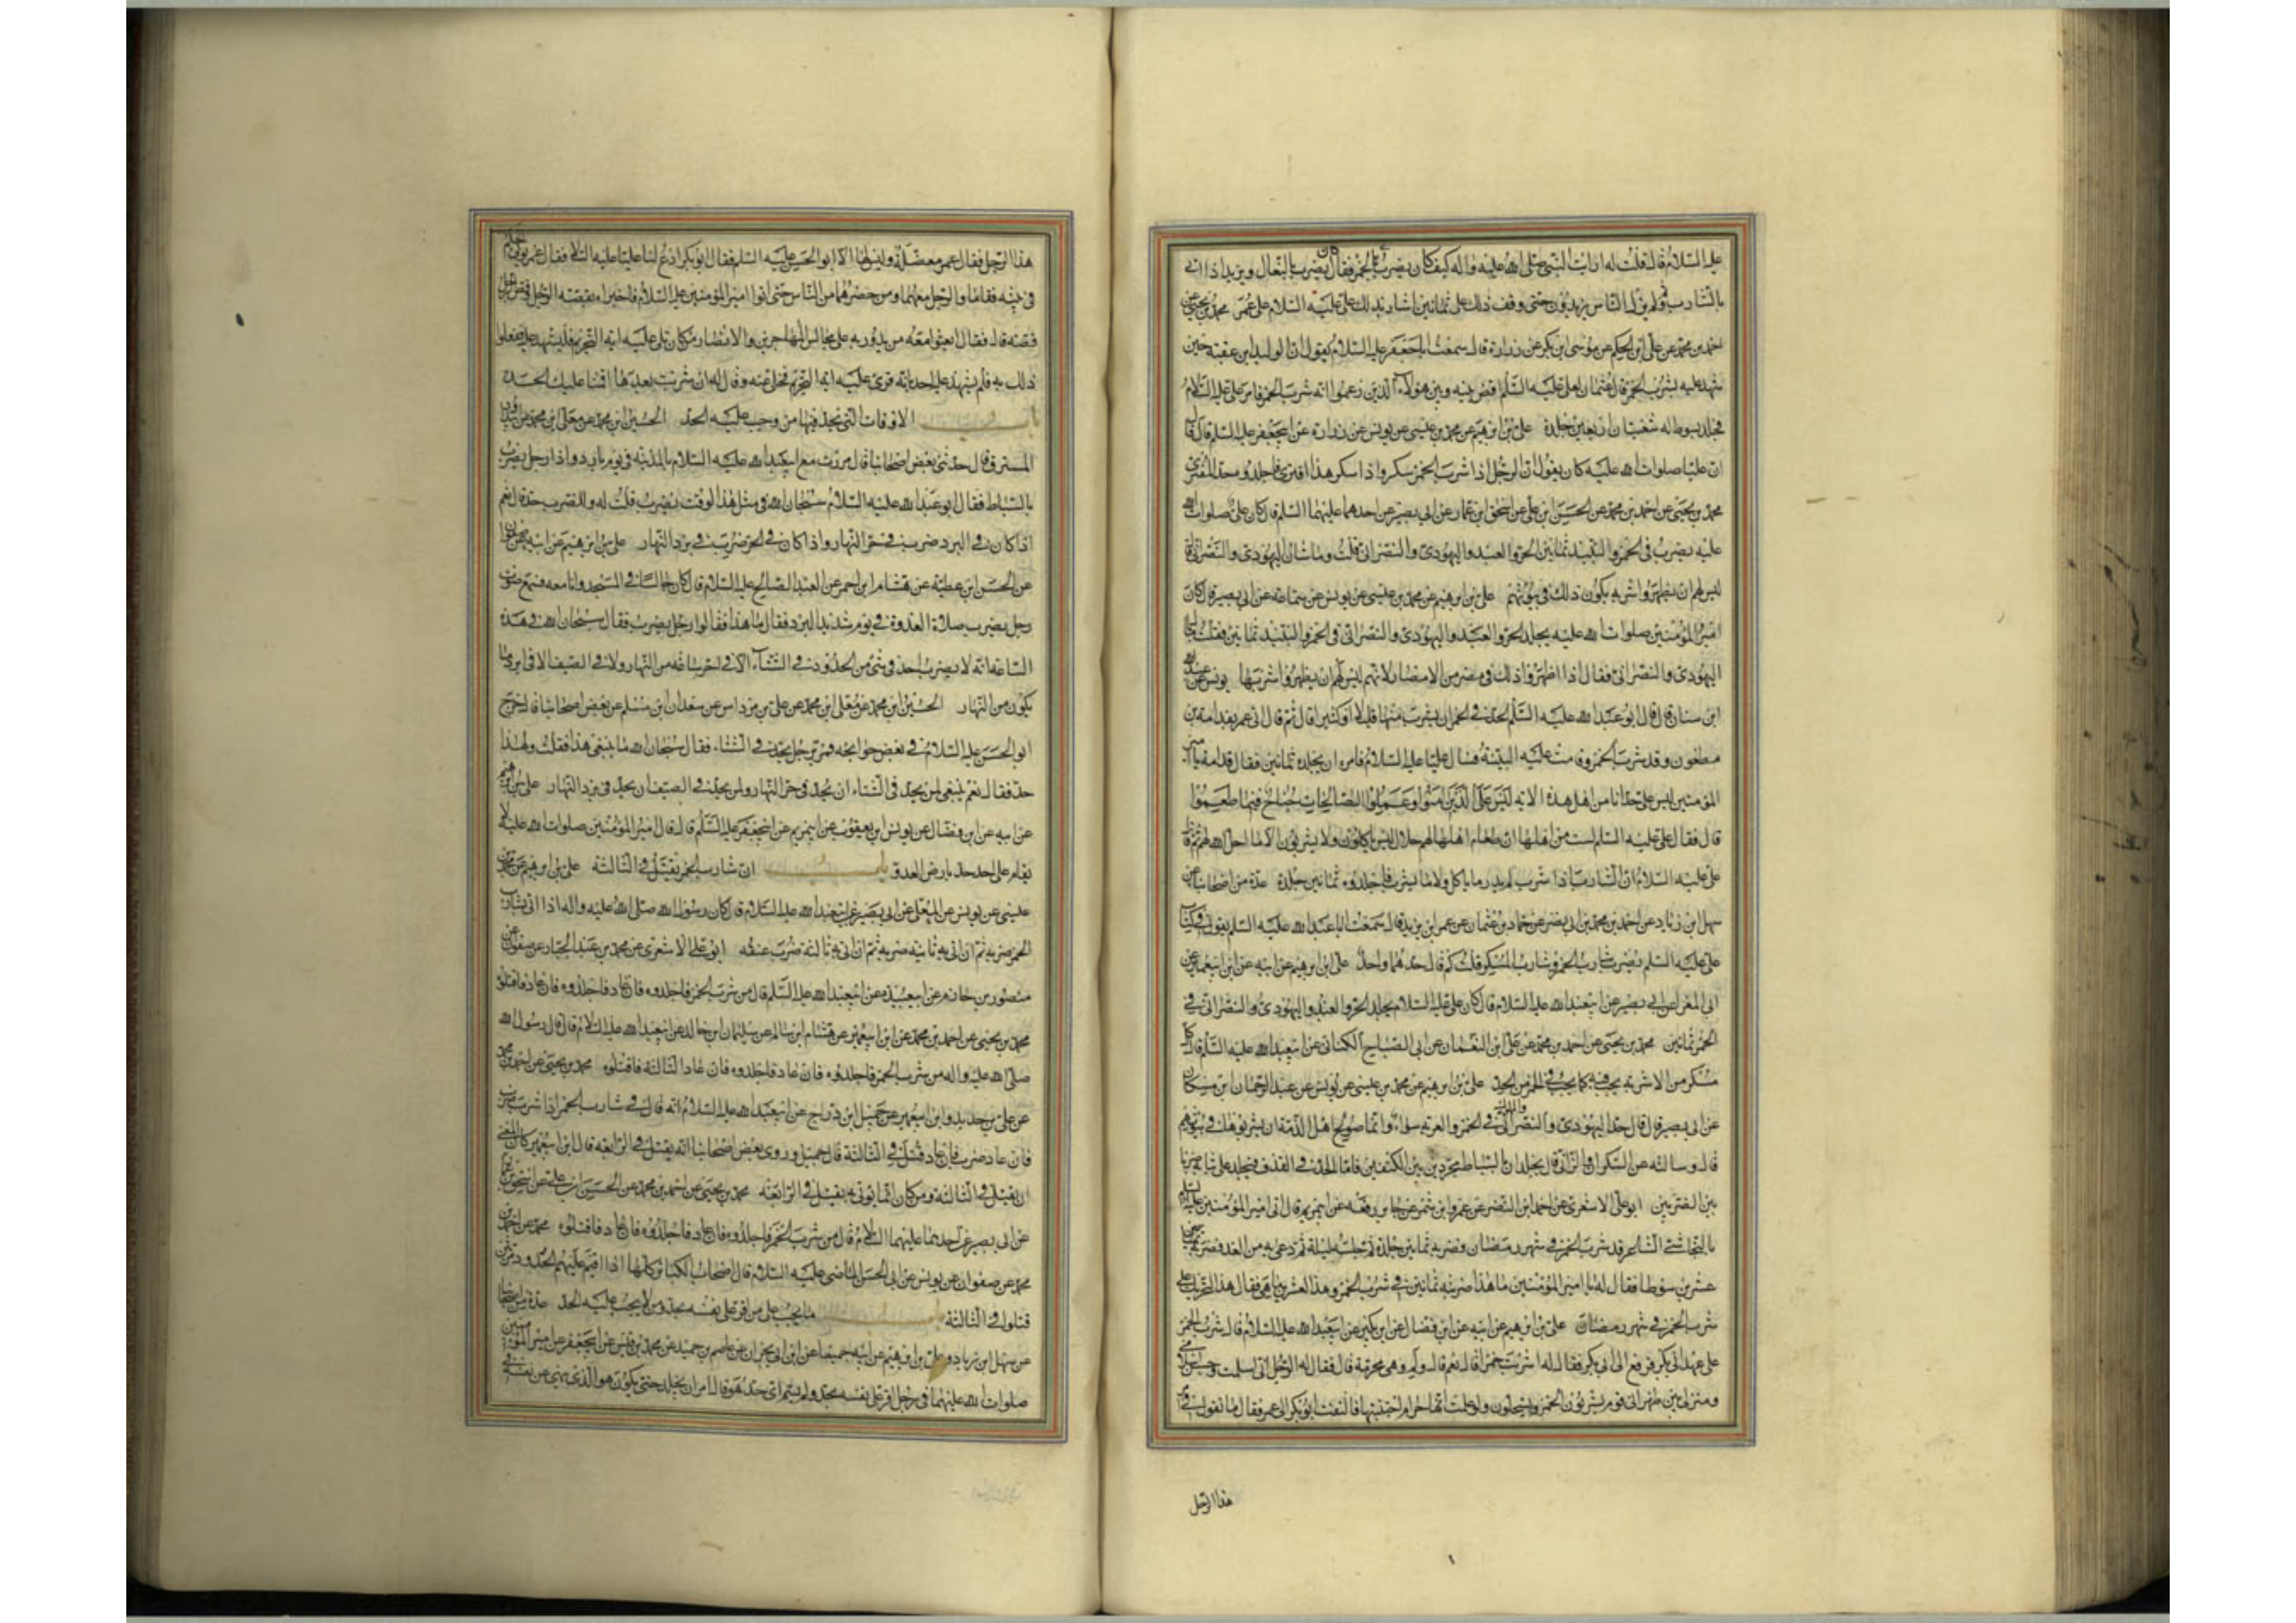 عليه السلام قال قلت له ارايت النبي صلى الله عليه واله كيف كان يضرب في الخمر فقال كان يضرب بالنعال ويزيد اذا اتي
بالشارب ثم لم يزل الناس يزيدون حتى وقف ذلك على ثمانين اشار بذلك علي عليه السلام على عمر محمد بن يحيى عن
احمد بن محمد عن علي بن الحكم عن موسى ابن بكر عن زرارة قال سمعت ابا جعفر عليه السلام يقول ان الوليد ابن عقبة حين
شهد عليه بشرب الخمر قال عثمان لعلي عليه السلم اقض بينه وبين هؤلاء الذين زعموا انه شرب الخمر فامر علي عليه السلام
فجلد بسوط له شعبتان اربعين جلدة علي بن ابرهيم عن محمد بن عيسى عن يونس عن زرارة عن ابي جعفر عليه السلم قال
ان عليا صلوات الله عليه كان يقول ان الرجل اذا شرب الخمر سكر واذا سكر هذا افترى فاجلدوه حد المفتري
محمد بن يحيى عن احمد بن محمد عن الحسين ابن علي عن اسحق ابن عمار عن ابي بصير عن احدهما عليهما السلم قال كان علي صلوات الله
عليه يضرب في الخمر والنبيذ ثمانين الحر والعبد واليهودي والنصراني قلت وما شان اليهودي والنصراني قال
ليس لهم ان يظهروا شربه يكون ذلك في بيوتهم علي بن ابرهيم عن محمد بن عيسى عن يونس عن سماعة عن ابي بصير قال كان
امير المؤمنين صلوات الله عليه يجلد الحر والعبد واليهودي والنصراني في الخمر والنبيذ ثمانين فقلت ما بال
اليهودي والنصراني فقال اذا اظهروا ذلك في مصر من الامصار لانهم ليس لهم ان يظهروا شربها يونس عن عبد الله
ابن سنان قال قال ابو عبد الله عليه السلم الحد في الخمر ان يشرب منها قليلا او كثيرا قال ثم قال اتي عمر بقدامة بن
مظعون وقد شرب الخمر وقامت عليه البينة فسال عليا عليه السلام فامره ان يجلده ثمانين فقال قدامة يا امير
المؤمنين ليس علي حد انا من اهل هذه الاية ليس على الذين امنوا وعملوا الصالحات جناح فيما طعموا
قال فقال علي عليه السلم لست من اهلها ان طعام اهلها لهم حلال ليس ياكلون ولا يشربون الا ما احل الله لهم ثم قال
علي عليه السلام ان الشارب اذا شرب لم يدر ما ياكل ولا ما يشرب فاجلدوه ثمانين جلدة عدة من اصحابنا عن
سهل ابن زياد عن احمد بن محمد بن ابي نصر عن حماد بن عثمان عن عمر ابن يزيد قال سمعت ابا عبد الله عليه السلم يقول في كتاب
علي عليه السلم يضرب شارب الخمر وشارب المسكر قلت كم قال حدهما واحد علي ابن ابرهيم عن ابيه عن ابن ابي عمير عن
ابي المغرا عن ابي بصير عن ابي عبد الله عليه السلام قال كان علي عليه السلام يجلد الحر والعبد واليهودي والنصراني في
الخمر ثمانين محمد بن يحيى عن احمد بن محمد عن علي ابن النعمان عن ابي الصباح الكناني عن ابي عبد الله عليه السلم قال كل
مسكر من الاشربة يجب فيه كما يجب في الخمر من الحد علي بن ابرهيم عن محمد بن عيسى عن يونس عن عبد الرحمان ابن مسكان
عن ابي بصير قال قال حد اليهودي والنصراني والمملوك في الخمر والفرية سواء وانما صولح اهل الذمة ان يشربوها في بيوتهم
قال وسالته عن السكران والزاني قال يجلدان بالسياط مجردين بين الكتفين فاما الحد في القذف فيجلد على ثيابه ضربا
بين الضربين ابو علي الاشعري عن احمد ابن النضر عن عمرو ابن شمر عن جابر رفعه عن ابي مريم قال اتي امير المؤمنين عليه السلم
بالنجاشي الشاعر قد شرب الخمر في شهر رمضان فضربه ثمانين جلدة ثم حبسه ليلة ثم دعي به من الغد فضربه
عشرين سوطا فقال له يا امير المؤمنين ما هذا ضربته ثمانين في شرب الخمر وهذا العشرين ما هي فقال هذا لتجريك على
شرب الخمر في شهر رمضان علي بن ابرهيم عن ابيه عن ابن فضال عن ابن بكير عن ابي عبد الله عليه السلام قال شرب رجل الخمر
على عهد ابي بكر فرفع الى ابي بكر فقال له اشربت خمرا قال نعم قال ولم وهي محرمة قال فقال له الرجل اني اسلمت وحسن اسلامي
ومنزلي بين ظهراني قوم يشربون الخمر ويستحلون ولو علمت انها حرام اجتنبتها فالتفت ابو بكر الى عمر فقال ما تقول في امر
هذا الرجل
هذا الرجل فقال عمر معضلة وليس لها الا ابو الحسن عليه السلم فقال ابو بكر ادع لنا عليا عليه السلام فقال عمر يؤتى الحكم
في بيته فقاما والرجل معهما ومن حضرهما من الناس حتى اتوا امير المؤمنين عليه السلام فاخبراه بقصة الرجل وقص الرجل
قصته قال فقال ابعثوا معه من يدور به على مجالس المهاجرين والانصار من كان تلي عليه اية التحريم فليشهد عليه ففعلوا
ذلك به فلم يشهد عليه احد بانه قرئ عليه اية التحريم فخلى عنه وقال له ان شربت بعدها اقمنا عليك الحد
باب الاوقات التي يحد فيها من وجب عليه الحد الحسين ابن محمد عن معلى ابن محمد عن
المسترق قال حدثني بعض اصحابنا قال مررت مع ابي عبد الله عليه السلام بالمدينة في يوم بارد واذا رجل يضرب
بالسياط فقال ابو عبد الله عليه السلام سبحان الله في مثل هذا الوقت يضرب قلت له وللضرب حد قال نعم
اذا كان في البرد ضرب في حر النهار واذا كان في الحر ضرب في برد النهار علي بن ابرهيم عن ابيه عن صفوان
عن الحسين ابن عطية عن هشام ابن احمر عن العبد الصالح عليه السلام قال كان جالسا في المسجد وانا معه فسمع صوت
رجل يضرب صلاة الغدوة في يوم شديد البرد فقال ما هذا فقالوا رجل يضرب فقال سبحان الله في هذه
الساعة انه لا يضرب احد في شئ من الحدود في الشتاء الا في احر ساعة من النهار ولا في الصيف الا في ابرد ما
يكون من النهار الحسين ابن محمد عن معلى ابن محمد عن علي بن مرداس عن سعدان ابن مسلم عن بعض اصحابنا قال خرج
ابو الحسن عليه السلام في بعض حوائجه فمر برجل يحد في الشتاء فقال سبحان الله ما ينبغي هذا فقلت ولهذا
حد فقال نعم ينبغي لمن يحد في الشتاء ان يحد في حر النهار ولمن يحد في الصيف ان يحد في برد النهار علي بن ابرهيم
عن ابيه عن ابن فضال عن يونس ابن يعقوب عن ابي مريم عن ابي جعفر عليه السلم قال قال امير المؤمنين صلوات الله عليه لا
يقام على احد حد بارض العدو باب ان شارب الخمر يقتل في الثالثة علي بن ابرهيم عن محمد بن
عيسى عن يونس عن المعلى عن ابي بصير عن ابي عبد الله عليه السلام قال كان رسول الله صلى الله عليه واله اذا اتي بشارب
الخمر ضربه ثم ان اتي به ثانية ضربه ثم ان اتي به ثالثة ضرب عنقه ابو علي الاشعري عن محمد بن عبد الجبار عن صفوان عن
منصور بن حازم عن ابي عبيدة عن ابي عبد الله عليه السلم قال من شرب الخمر فاجلدوه فان عاد فاجلدوه فان عاد فاقتلوه
محمد بن يحيى عن احمد بن محمد عن ابن ابي عمير عن هشام ابن سالم عن سليمان ابن خالد عن ابي عبد الله عليه السلام قال قال رسول الله
صلى الله عليه واله من شرب الخمر فاجلدوه فان عاد فاجلدوه فان عاد الثالثة فاقتلوه محمد بن يحيى عن احمد بن محمد
عن علي بن حديد وابن ابي عمير عن جميل ابن دراج عن ابي عبد الله عليه السلام انه قال في شارب الخمر اذا شرب ضرب
فان عاد ضرب فان عاد قتل في الثالثة قال جميل وروى بعض اصحابنا انه يقتل في الرابعة قال ابن ابي عمير كان المعنى
ان يقتل في الثالثة ومن كان انما يوتى به يقتل في الرابعة محمد بن يحيى عن احمد بن محمد عن الحسين ابن علي عن اسحق ابن عمار
عن ابي بصير عن احدهما عليهما السلام قال من شرب الخمر فاجلدوه فان عاد فاجلدوه فان عاد فاقتلوه محمد عن احمد بن
محمد عن صفوان عن يونس عن ابي الحسن الماضي عليه السلام قال اصحاب الكبائر كلها اذا اقيم عليهم الحدود مرتين
قتلوا في الثالثة باب ما يجب على من اقر على نفسه بحد ومن لا يجب عليه الحد عدة من اصحابنا
عن سهل ابن زياد وعلي بن ابرهيم عن ابيه جميعا عن ابن ابي نجران عن عاصم بن حميد عن محمد بن قيس عن ابي جعفر عن امير المؤمنين
صلوات الله عليهما في رجل اقر على نفسه بحد ولم يسم اي حد هو قال امر ان يجلد حتى يكون هو الذي ينهى عن نفسه